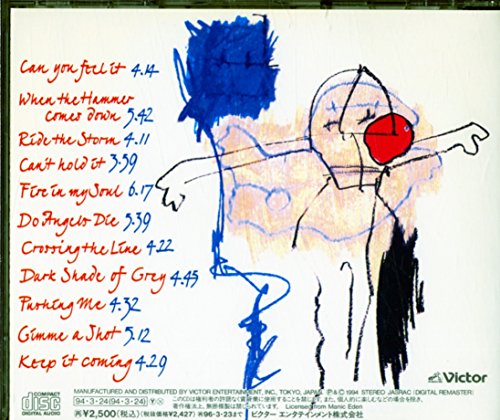 Can you feel it 4.14
When the Hammer
comes down 5.42
Ride the Storm 4.11
Can't hold it 3.59
Fire in my Soul 6.17
Do Angels Die 5.39
Crossing the Line 4.22
Dark Shade of Grey 4.45
Pushing Me 4.32
Gimme a Shot 5.12
Keep it coming 4.29
Victor
COMPACT
disc
DIGITAL AUDIO
MANUFACTURED AND DISTRIBUTED BY VICTOR ENTERTAINMENT, INC., TOKYO, JAPAN. Ⓟ&Ⓒ 1994 STEREO JASRAC (DIGITAL REMASTER)
94・3・24(94・3・24)
このCDは権利者の許諾なく賃貸業に使用することを禁じます。また、個人的に楽しむなどの場合を除き、
著作権法上、無断複製は禁じられています。 Licensed from Manic Eden
¥2,500(税込)(税抜価格¥2,427) 96・3・23まで ビクター エンタテインメント株式会社